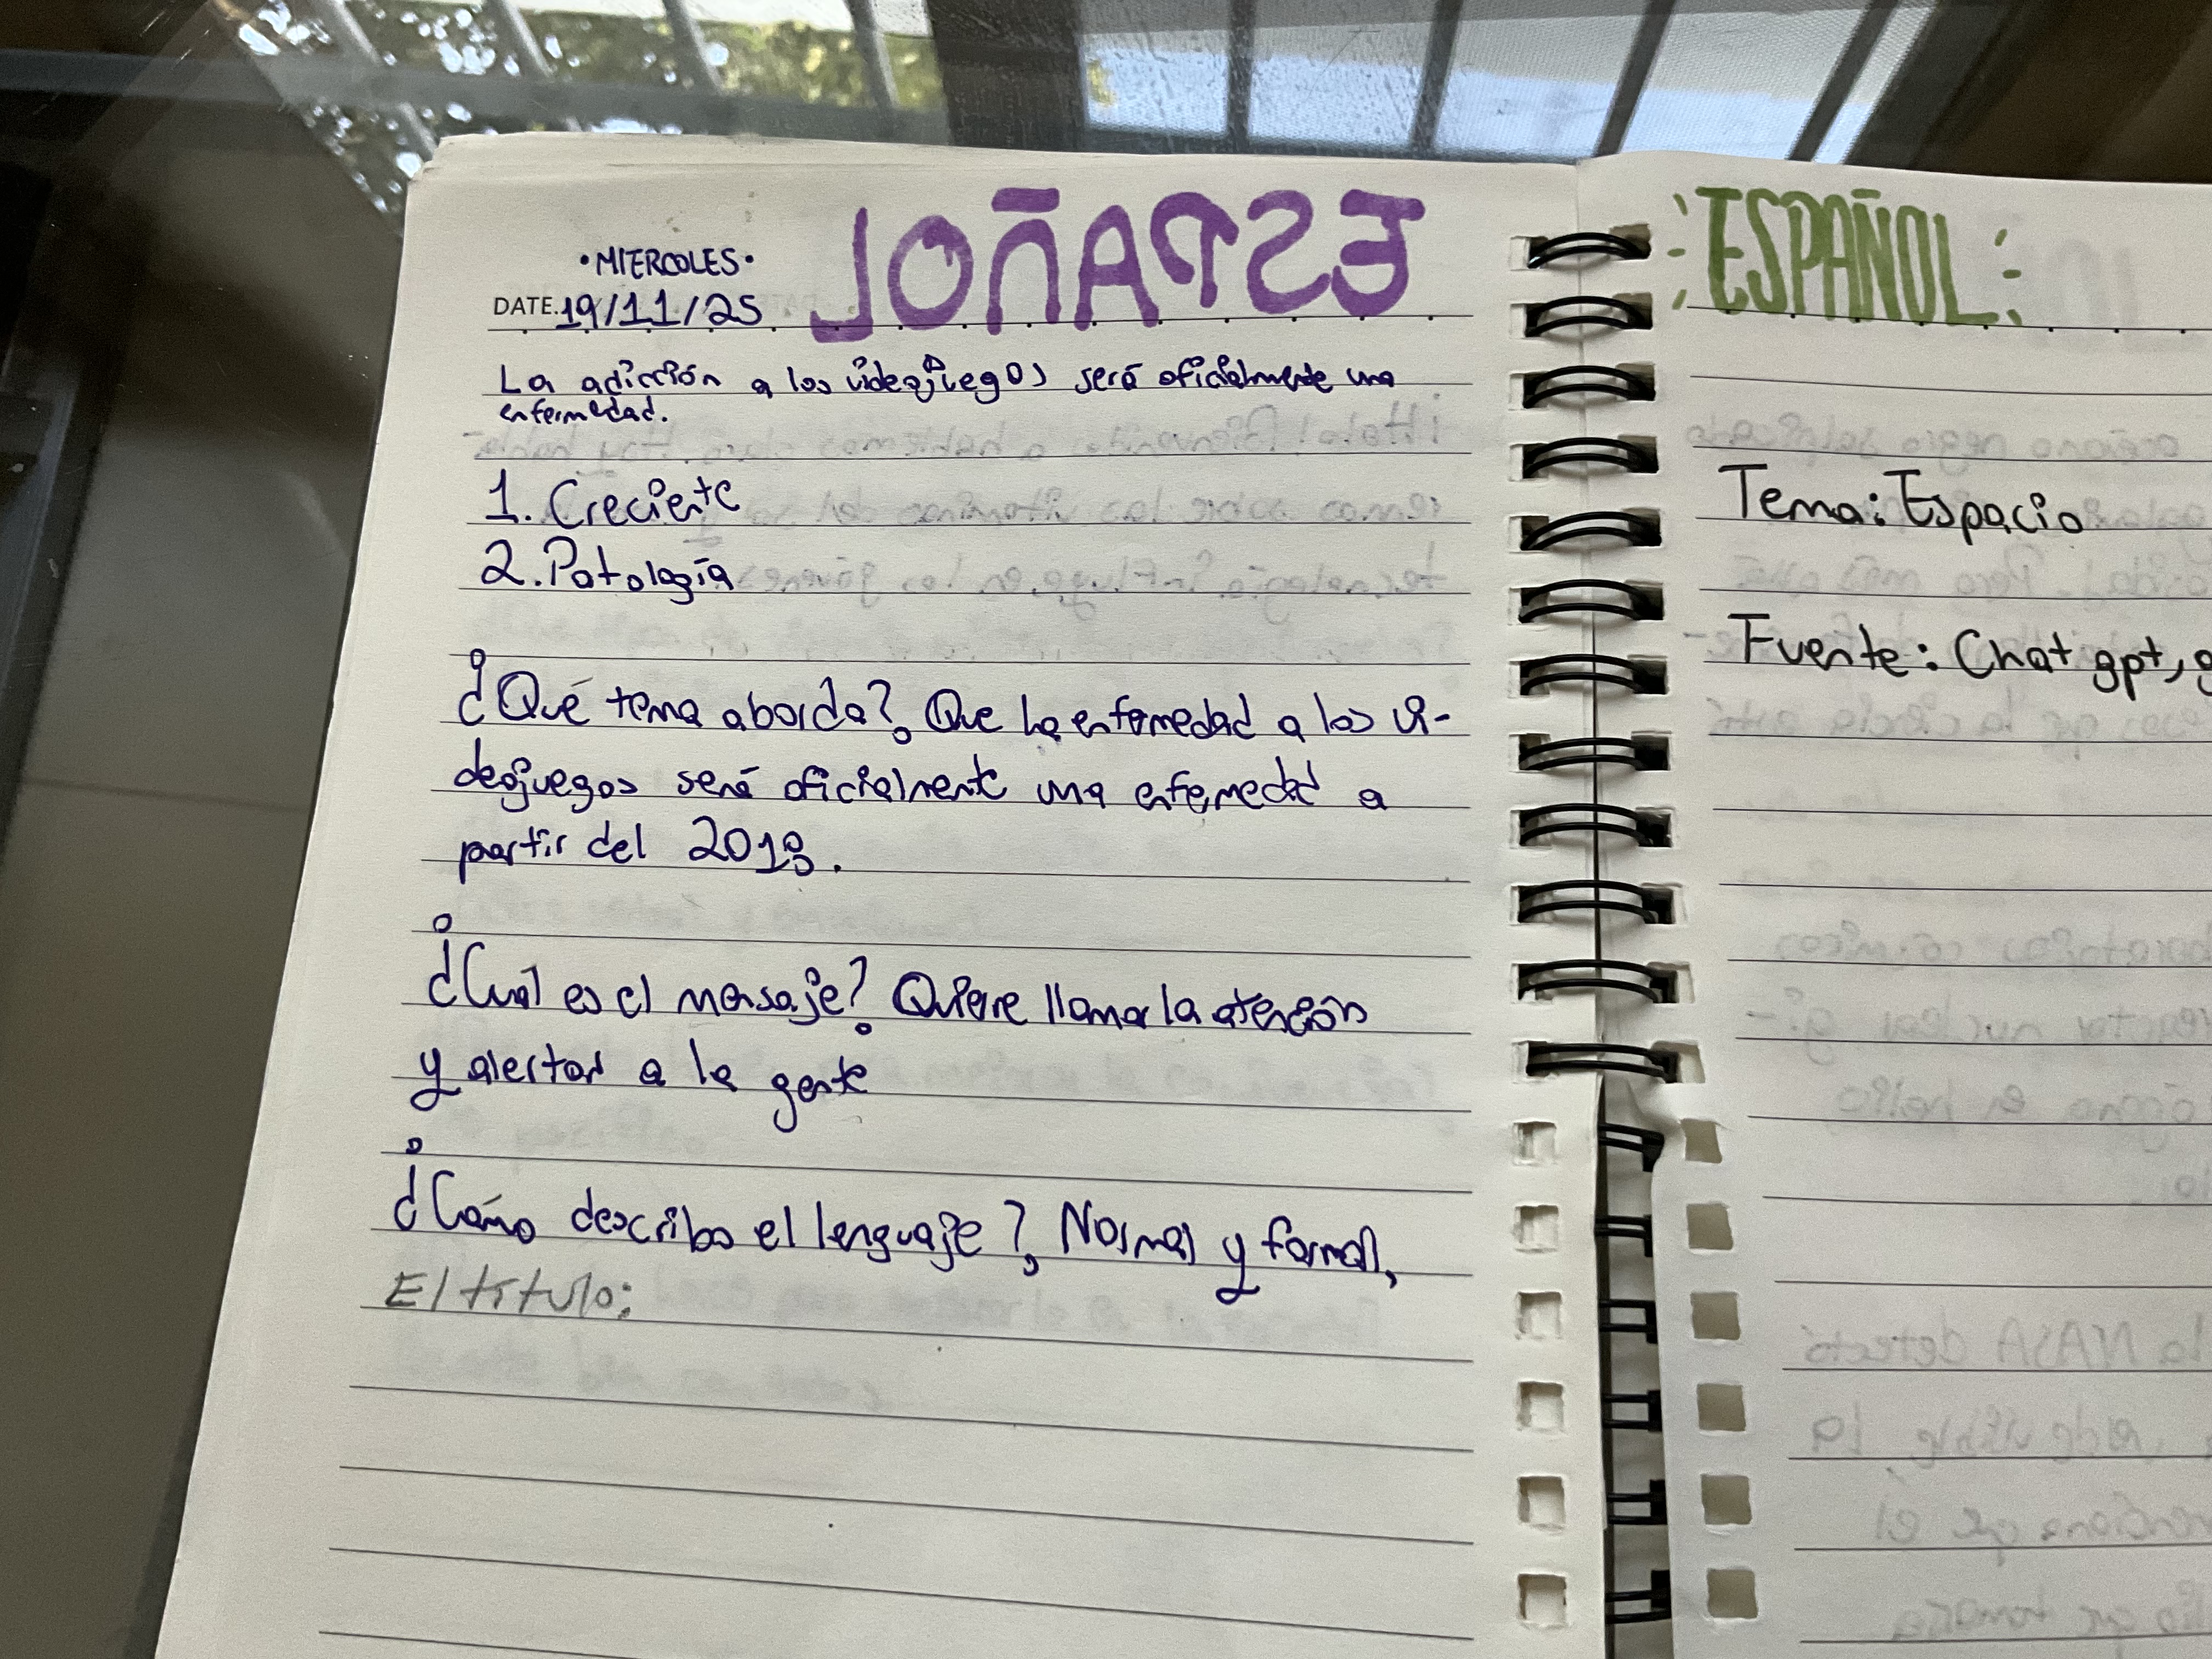 ESPAÑOL
•MIERCOLES•
DATE. 19/11/25
La adicción a los videojuegos será oficialmente una
enfermedad.
1. Creciente
2. Patología
¿Qué tema aborda? Que la enfermedad a los vi-
deojuegos será oficialmente una enfemedad a
partir del 2018.
¿Cuál es el mensaje? Quiere llamar la atención
y alertar a la gente
¿Cómo describo el lenguaje? Normal y formal,
El título:
ESPAÑOL
Tema: Espacio
Fuente: Chat gpt, g